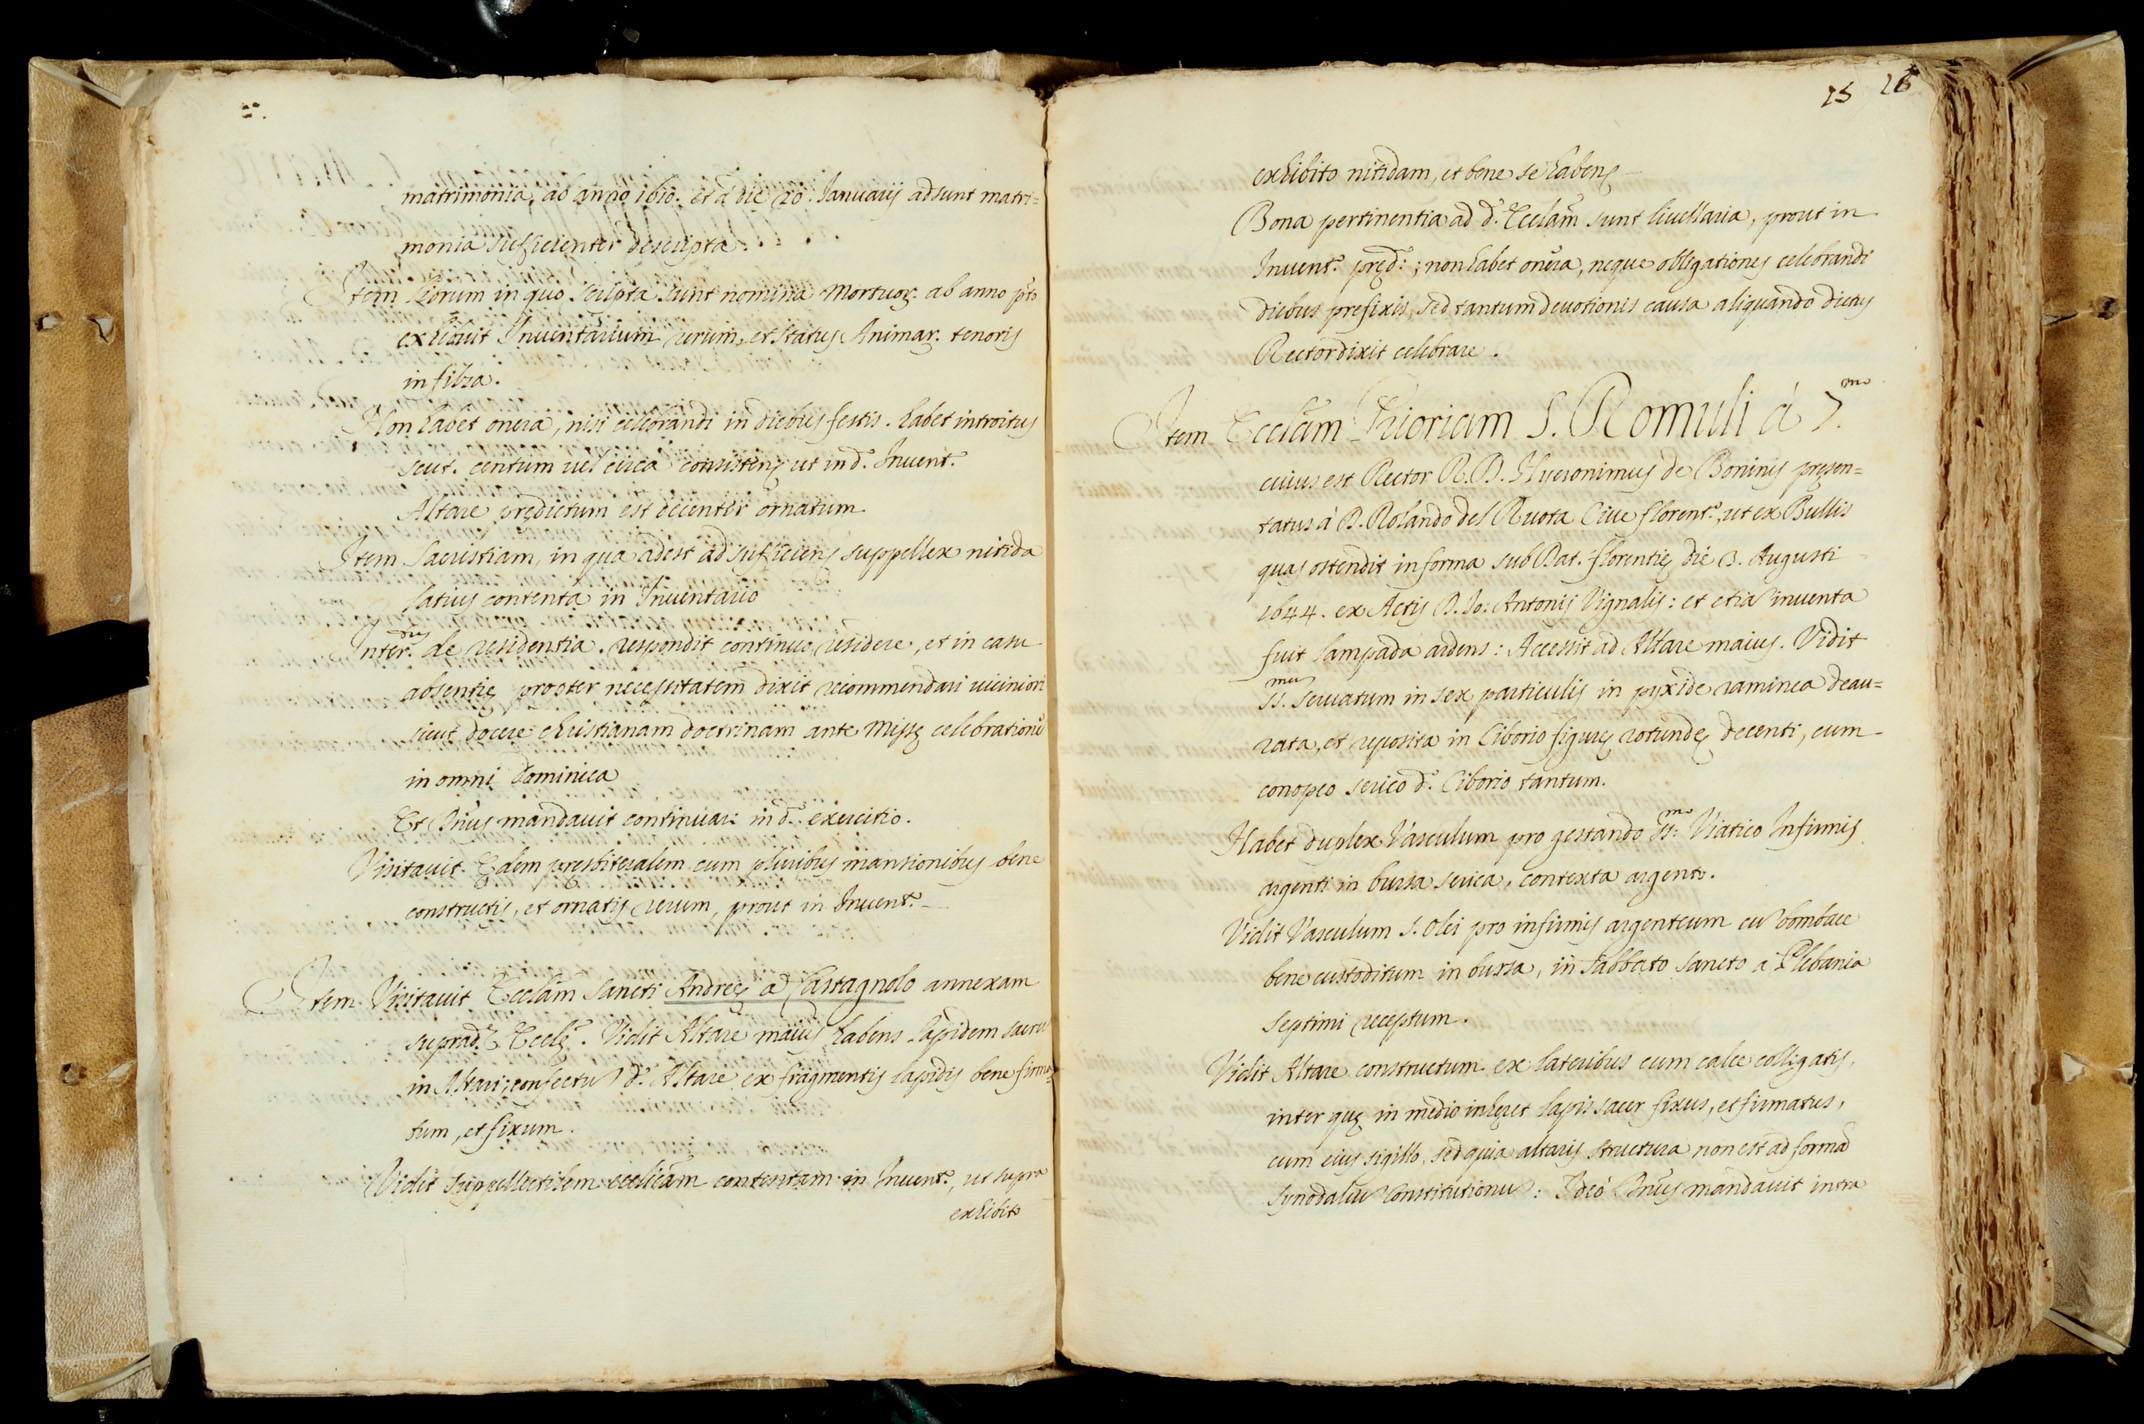 matrimonia, ab anno 1610. et à die 20. Ianuarij adsunt matri=
monia sufficienter descripta.
Item librum in quo scripta sunt nomina Mortuoꝝ. ab anno pto
exhibuit Inuentarium rerum, et Status Animar. tenoris
in filza.
Non habet onera, nisi celebrandi in diebus festis. habet introitus
scut. centum uel circa consistens ut in d.º Inuent.º
Altare prędictum est decenter ornatum
Item Sacristiam, in qua adest ad sufficiens suppellex nitida
latius contenta in Inuentario
Inter.dus de residentia. respondit continuo residere, et in casu
absentię propter necessitatem dixit recommendari uiciniori
sicut docere christianam doctrinam ante Missę celebrationē
in omni Dominica
Et Dn̄us mandauit continuare in d.º exercitio.
Visitauit Ędem presbiteralem cum pluribus mansionibus bene
constructis, et ornatis rerum, prout in Inuent.º
Item Visitauit Eccl̄am Sancti Andreę a Castagnolo annexam
suprad.ę Eccl̄ę. Vidit Altare maius habens lapidem sacrū
in Altari; confectū d.º Altare ex fragmentis lapidis bene firma=
tum, et fixum.
Vidit suppellectilem eccl̄icam contentam in Inuent.º, ut supra
exhibito
25 26
exhibito nitidam, et bene se habens
Bona pertinentia ad d.ª Eccl̄am sunt liuellaria, prout in
Inuent.º pręd.º; non habet on̄era, neque obligationes celebrandi
diebus prefixis, sed tantum deuotionis causa aliquando dictus
Rector dixit celebrare.
Item Eccl̄am Prioriam S. Romuli à 7.mo
cuius est Rector R. D. Hyeronimus de Boninis presen=
tatus à D. Rolando del Ruota Ciue florent.º, ut ex Bullis
quas ostendit in forma sub Dat. florentię die 3. Augusti
1644. ex Actis D. Io: Antonij Vignalis: et etiā inuenta
fuit lampada ardens: Accessit ad Altare maius. Vidit
SS.mum seruatum in sex particulis in pyxide raminea deau=
rata, et reposita in Ciborio figurę rotundę decenti, cum
conopeo serico d.º Ciborio tantum.
Habet duplex Vasculum pro gestando SS.mo Viatico Infirmis
argenti in bursa serica, contexta argento.
Vidit Vasculum S. Olei pro infirmis argenteum cū bombace
bene custoditum in bursa, in Sabbato Sancto a Plebania
Septimi receptum.
Vidit Altare constructum ex lateribus cum calce colligatis,
inter quę in medio inhęret lapis sacer fixus, et firmatus,
cum eius sigillo, sed quia altaris structura non est ad formā
Synodaliū Constitutionū: Ideò Dn̄us mandauit intra